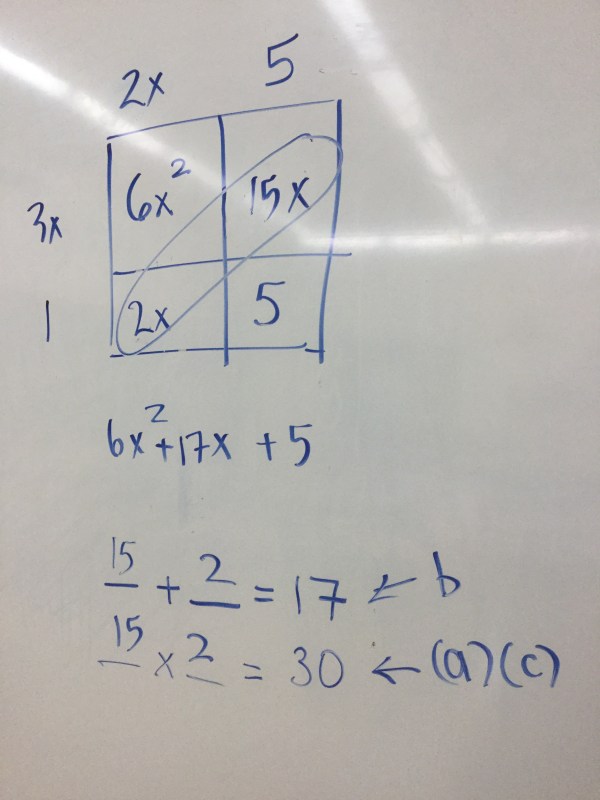 2x 5
3x 6x² 15x
1 2x 5
6x²+17x + 5
15 + 2 = 17 ← b
15 x 2 = 30 ← (a)(c)